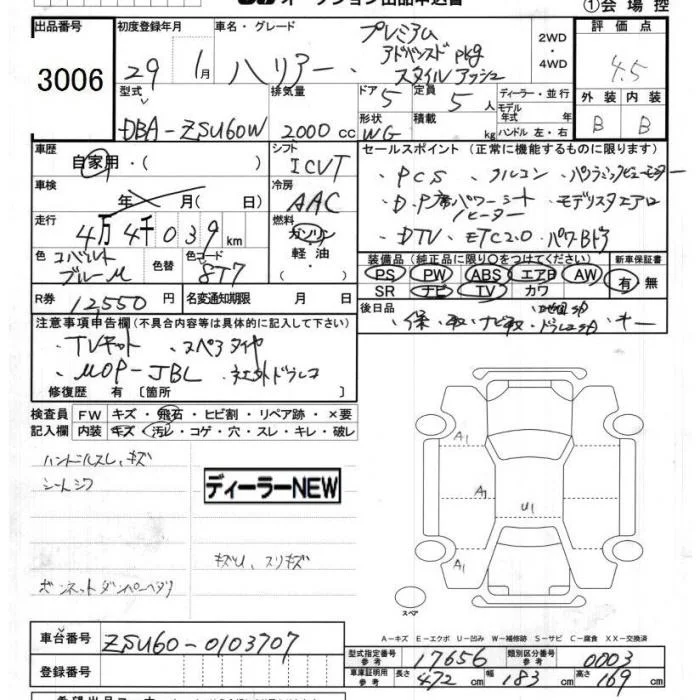 オークション出品申込書
①会場控
出品番号
3006
初度登録年月
29 1月
車名・グレード
ハリアー
プレミアム
アドバンスド pkg
スタイルアッシュ
2WD
・
4WD
評価点
4.5
型式
DBA-ZSU60W
排気量
2000 cc
ドア
5
定員
5 人
形状
WG
積載
kg
ディーラー・並行
モデル
年式 年
ハンドル 左・右
外装 内装
B B
車歴
自家用・( )
シフト
ICVT
車検
年 月( 日)
冷房
AAC
走行
4万4千039km
燃料
ガソリン
軽油
色 コバルト
ブルーM
色替
色コード
8T7
R券
12,550円
名変通知期限 月 日
セールスポイント(正常に機能するものに限ります)
・PCS ・クルコン ・パノラミックビューモニター
・D.P席パワーシート ・モデリスタエアロ
ヒーター
・DTV ・ETC2.0 ・パワーBドア
装備品(純正品に限り○をつけてください)
PS PW ABS エアB AW
SR ナビ TV カワ
新車保証書
有・無
後日品
・保・取・ナビ取・ドラレコ取・キー
注意事項申告欄(不具合内容等は具体的に記入して下さい)
・TVキット ・スペアタイヤ
・MOP-JBL ・社外ドラレコ
修復歴 有〔箇所 〕
検査員 FW キズ・飛石・ヒビ割・リペア跡・×要
記入欄 内装 キズ・汚レ・コゲ・穴・スレ・キレ・破レ
ハンドルスレ、キズ
シートシワ
ディーラーNEW
キズU、スリキズ
ボンネットダンパーヘタリ
A1
A1
U1
A1
スペア
A-キズ E-エクボ U-凹み W-補修跡 S-サビ C-腐食 XX-交換済
車台番号
ZSU60-0103707
登録番号
型式指定番号
参考
17656
類別区分番号
参考
0003
車庫証明用
参考
長さ 472 cm 幅 183 cm 高さ 169 cm